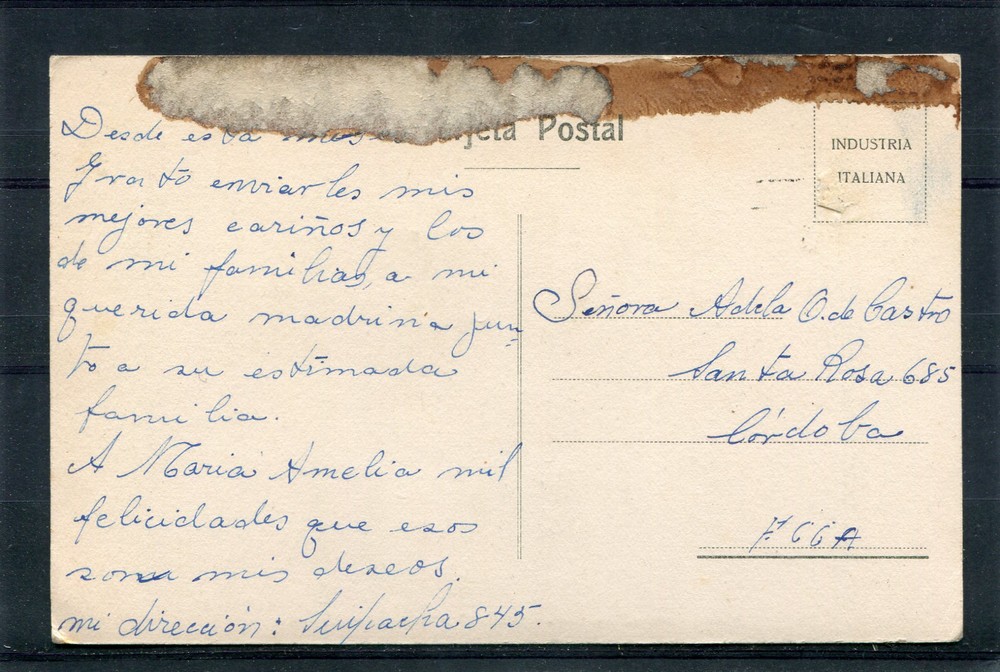 Tarjeta Postal
INDUSTRIA
ITALIANA
Desde esta
Grato enviarles mis
mejores cariños y los
de mi familias, a mi
querida madrina jun-
to a su estimada
familia.
A Maria Amelia mil
felicidades que esos
son mis deseos.
mi dirección: Suipacha 845.
Señora Adela O. de Castro
Santa Rosa 685
Córdoba
FCCA